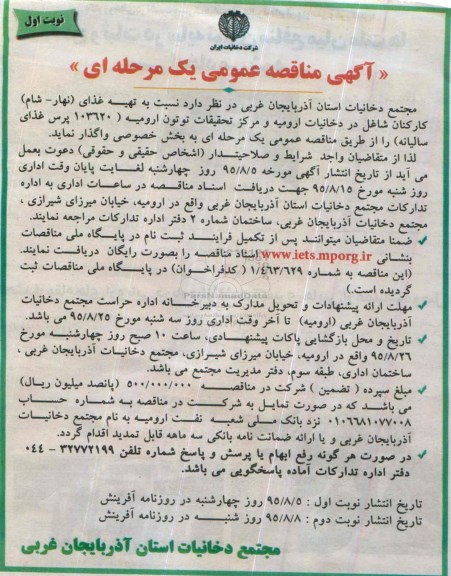 نوبت اول
شرکت دخانیات ایران
« آگهی مناقصه عمومی یک مرحله ای »
مجتمع دخانیات استان آذربایجان غربی در نظر دارد نسبت به تهیه غذای (نهار- شام)
کارکنان شاغل در دخانیات ارومیه و مرکز تحقیقات توتون ارومیه ( ۱۰۳۶۲۰ پرس غذای
سالیانه) را از طریق مناقصه عمومی یک مرحله ای به بخش خصوصی واگذار نماید.
لذا از متقاضیان واجد شرایط و صلاحیتدار (اشخاص حقیقی و حقوقی) دعوت بعمل
می آید از تاریخ انتشار آگهی مورخه ۹۵/۸/۵ روز چهارشنبه لغایت پایان وقت اداری
روز شنبه مورخ ۹۵/۸/۱۵ جهت دریافت اسناد مناقصه در ساعات اداری به اداره
تدارکات مجتمع دخانیات استان آذربایجان غربی واقع در ارومیه، خیابان میرزای شیرازی ،
مجتمع دخانیات آذربایجان غربی، ساختمان شماره ۲ دفتر اداره تدارکات مراجعه نمایند.
ضمنا متقاضیان میتوانند پس از تکمیل فرایند ثبت نام در پایگاه ملی مناقصات
بنشانی www.iets.mporg.ir اسناد مناقصه را بصورت رایگان دریافت نمایند.
(این مناقصه به شماره ۱/۴۶۳/۶۲۹ ( کدفراخوان) در پایگاه ملی مناقصات ثبت
گردیده است.)
مهلت ارائه پیشنهادات و تحویل مدارک به دبیرخانه اداره حراست مجتمع دخانیات
آذربایجان غربی (ارومیه) تا آخر وقت اداری روز سه شنبه مورخ ۹۵/۸/۲۵ می باشد.
تاریخ و محل بازگشایی پاکات پیشنهادی، ساعت ۱۰ صبح روز چهارشنبه مورخ
۹۵/۸/۲۶ واقع در ارومیه، خیابان میرزای شیرازی، مجتمع دخانیات آذربایجان غربی ،
ساختمان اداری، طبقه سوم، دفتر مدیریت مجتمع می باشد.
مبلغ سپرده ( تضمین ) شرکت در مناقصه ۵۰۰/۰۰۰/۰۰۰ (پانصد میلیون ریال)
می باشد که در صورت تمایل به شرکت در مناقصه به شماره حساب
۰۱۰۶۶۸۱۰۷۷۰۰۸ نزد بانک ملی شعبه نفت ارومیه به نام مجتمع دخانیات
آذربایجان غربی و یا ارائه ضمانت نامه بانکی سه ماهه قابل تمدید اقدام گردد.
در صورت هر گونه رفع ابهام یا پرسش و پاسخ شماره تلفن ۳۲۷۷۲۱۹۹ - ۰۴۴
دفتر اداره تدارکات آماده پاسخگویی می باشد.
تاریخ انتشار نوبت اول : ۹۵/۸/۵ روز چهارشنبه در روزنامه آفرینش
تاریخ انتشار نوبت دوم : ۹۵/۸/۸ روز شنبه در روزنامه آفرینش
مجتمع دخانیات استان آذربایجان غربی